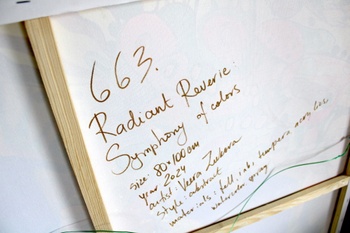 663.
Radiant Reverie:
Symphony of colors
size: 80×100cm
year 2024
artist: Veera Zukova
style: abstract
materials: foil, ink, tempera,
watercolor, spray